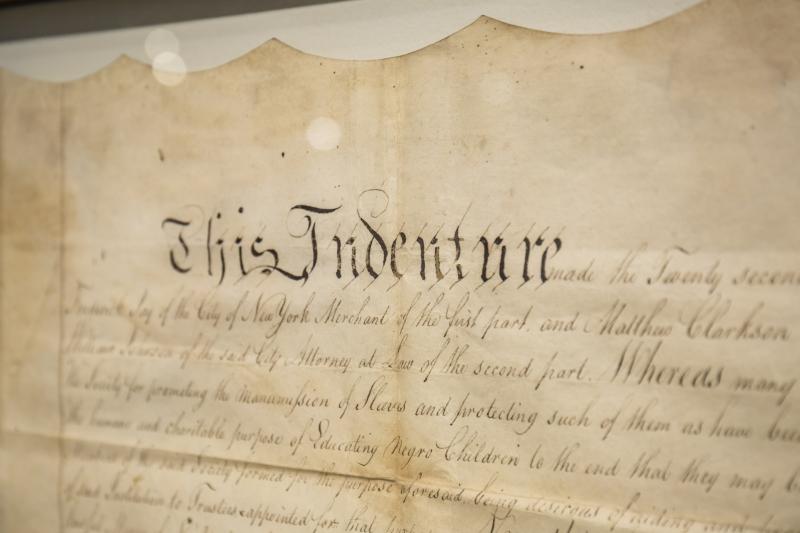 This Indenture made the Twenty second
Frederick Jay of the City of New York Merchant of the first part, and Matthew Clarkson
William Johnson of the said City Attorney at Law of the second part. Whereas many
the Society for promoting the manumission of Slaves and protecting such of them as have been
the humane and charitable purpose of Educating Negro Children to the end that they may
of the said Society formed for the purpose aforesaid, being desirous of aiding and
of said Institution to Trustees appointed for that